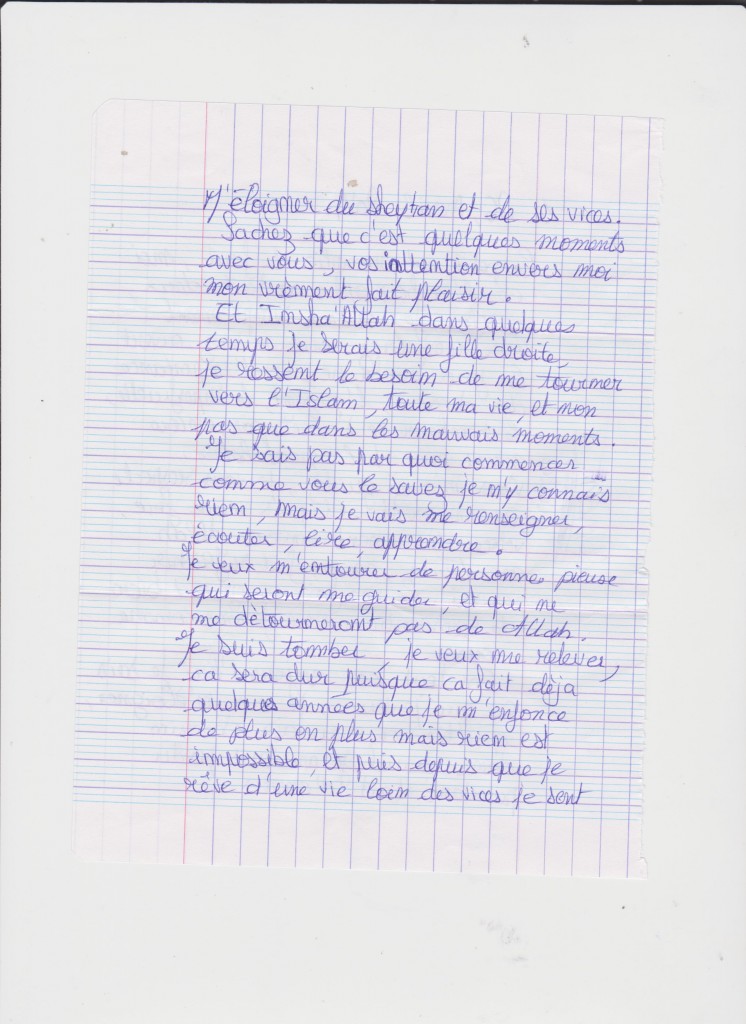 M'éloigner du sheytan et de ses vices.
Sachez que c'est quelques moments
avec vous, vos inttention envers moi
mon vrèment fait plaisir.
Et Insha'Allah dans quelques
temps je serais une fille droite,
je ressent le besoin de me tourner
vers l'Islam, toute ma vie, et non
pas que dans les mauvais moments.
Je sais pas par quoi commencer
comme vous le savez je m'y connais
rien, mais je vais me renseigner,
écouter, lire, apprendre.
Je veux m'entourer de personnes pieuse
qui seront me guider, et qui ne
me détourneront pas de Allah.
Je suis tomber je veux me relever,
ca sera dur puisque ca fait dèja
quelques années que je m'enfonce
de plus en plus mais rien est
impossible, et puis depuis que je
rêve d'une vie loin des vices je sent